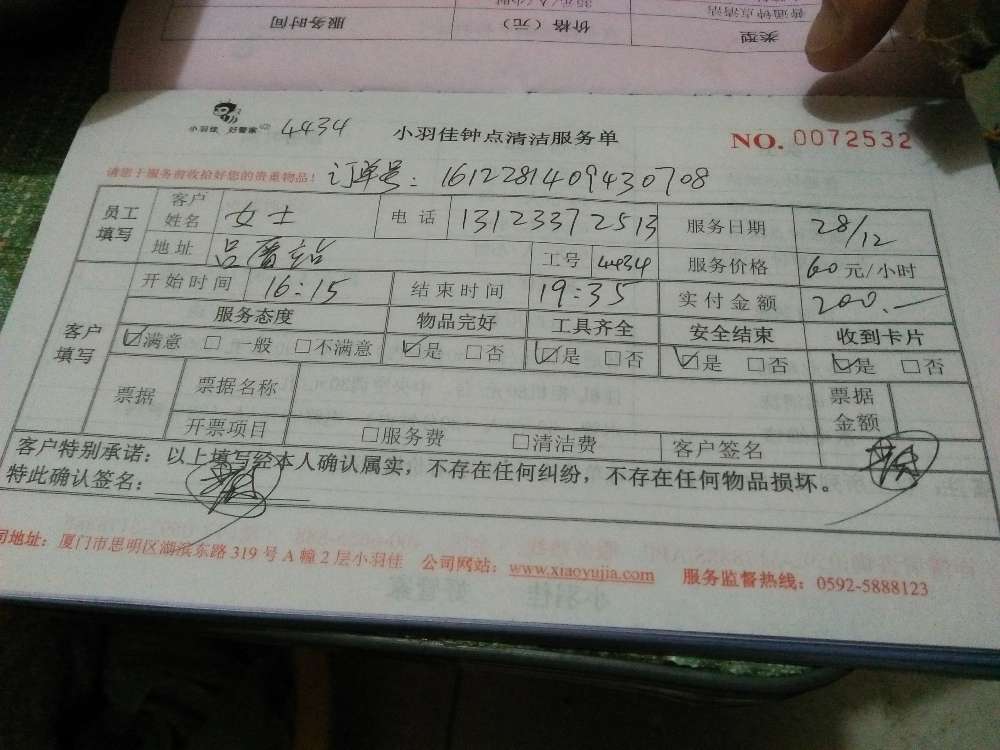 类型 价格（元） 服务时间
普通钟点清洁 35元/人/小时
小羽佳 好管家 4434 小羽佳钟点清洁服务单 NO. 0072532
请您于服务前收拾好您的贵重物品！ 订单号：1612281409430708
员工填写 客户姓名 女士 电话 13123372513 服务日期 28/12
地址 吕厝站 工号 4434 服务价格 60元/小时
客户填写 开始时间 16:15 结束时间 19:35 实付金额 200.—
服务态度 物品完好 工具齐全 安全结束 收到卡片
☑满意 □一般 □不满意 ☑是 □否 ☑是 □否 ☑是 □否 ☑是 □否
票据 票据名称 票据金额
开票项目 □服务费 □清洁费 客户签名
客户特别承诺：以上填写经本人确认属实，不存在任何纠纷，不存在任何物品损坏。
特此确认签名：
司地址：厦门市思明区湖滨东路319号A幢2层小羽佳 公司网站：www.xiaoyujia.com 服务监督热线：0592-5888123